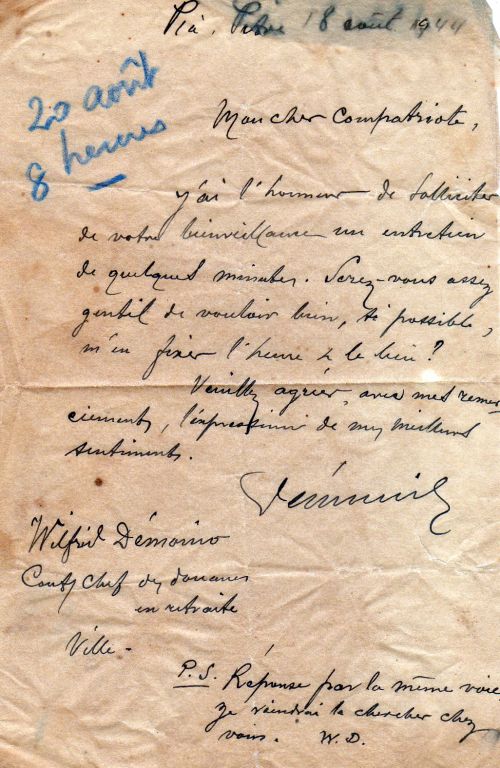 P.à. Pitre 18 août 1944
20 août
8 heures
Mon cher Compatriote,
J'ai l'honneur de solliciter
de votre bienveillance un entretien
de quelques minutes. Serez-vous assez
gentil de vouloir bien, si possible,
m'en fixer l'heure & le lieu ?
Veuillez agréer, avec mes remer-
ciements, l'expression de mes meilleurs
sentiments.
Wilfrid Démoino
Chef des douanes
en retraite
Ville -
P.S. Réponse par la même voie
Je viendrai la chercher chez
vous. W.D.